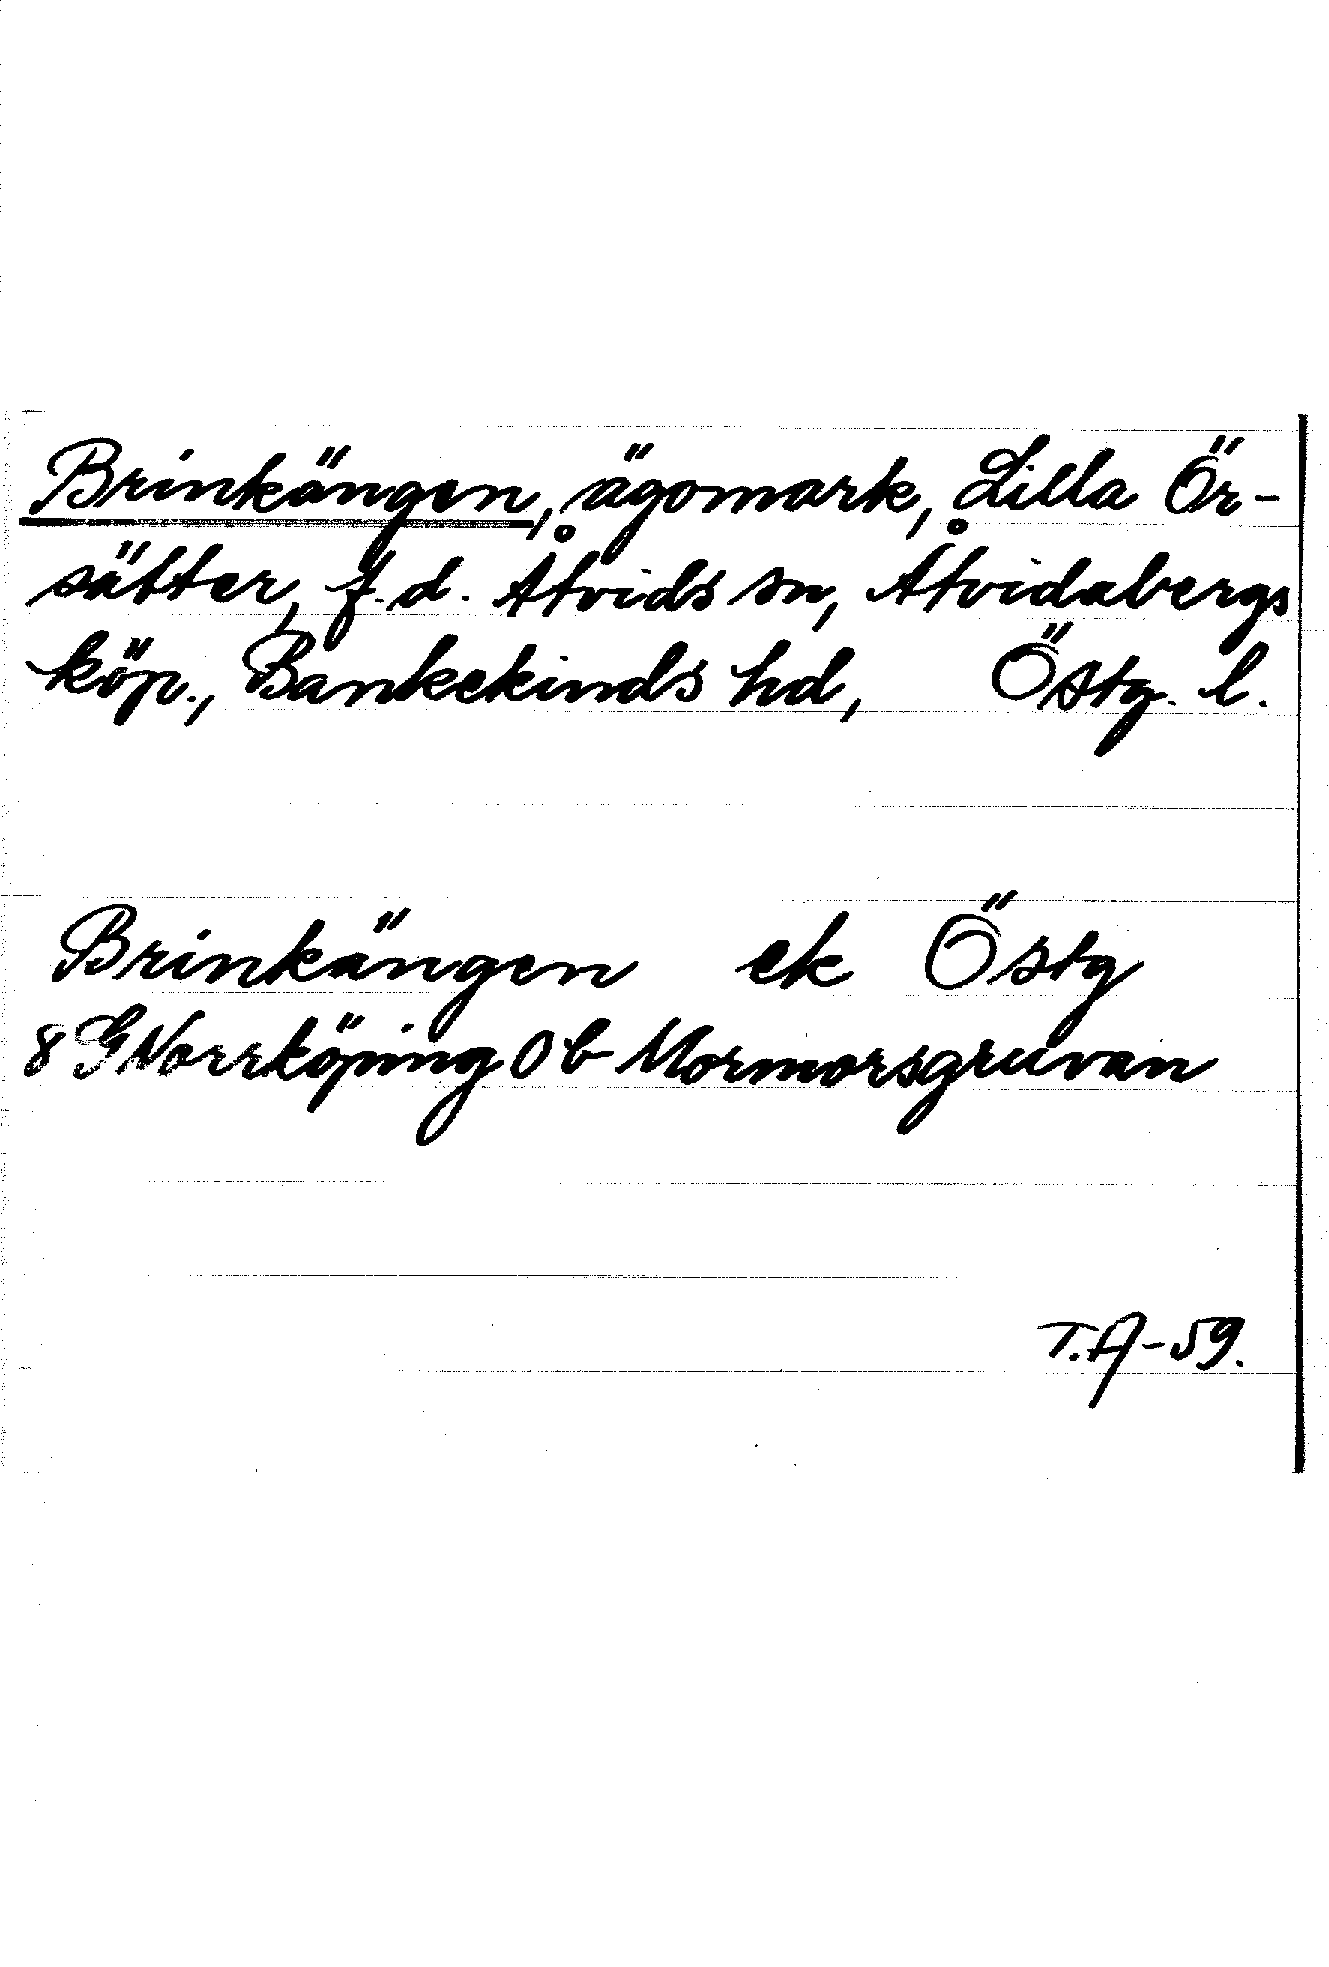 Brinkängen, ägomark, Lilla Ör-
sätter, f.d. Åtvids sn, Åtvidabergs
köp., Bankekinds hd, Östg. l.
Brinkängen ek Östg
8 G Norrköping 0 b Mormorsgruvan
T.A-59.